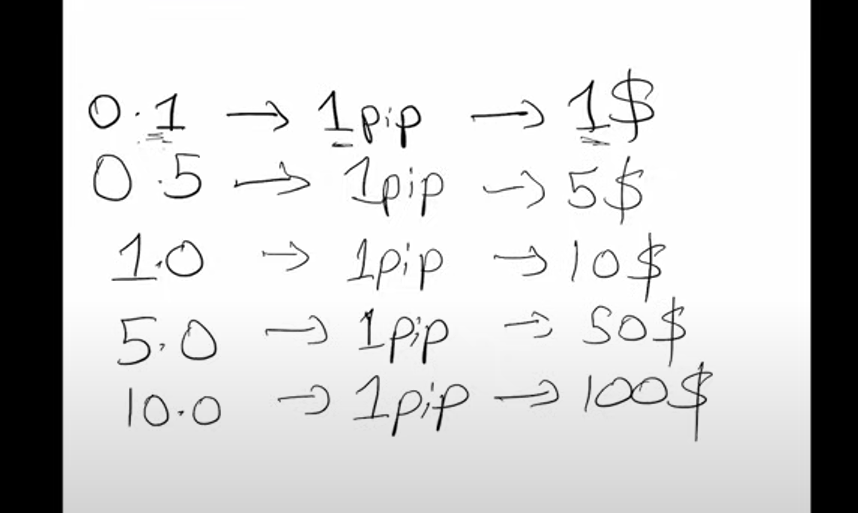 0.1 → 1pip → 1$
0.5 → 1pip → 5$
1.0 → 1pip → 10$
5.0 → 1pip → 50$
10.0 → 1pip → 100$